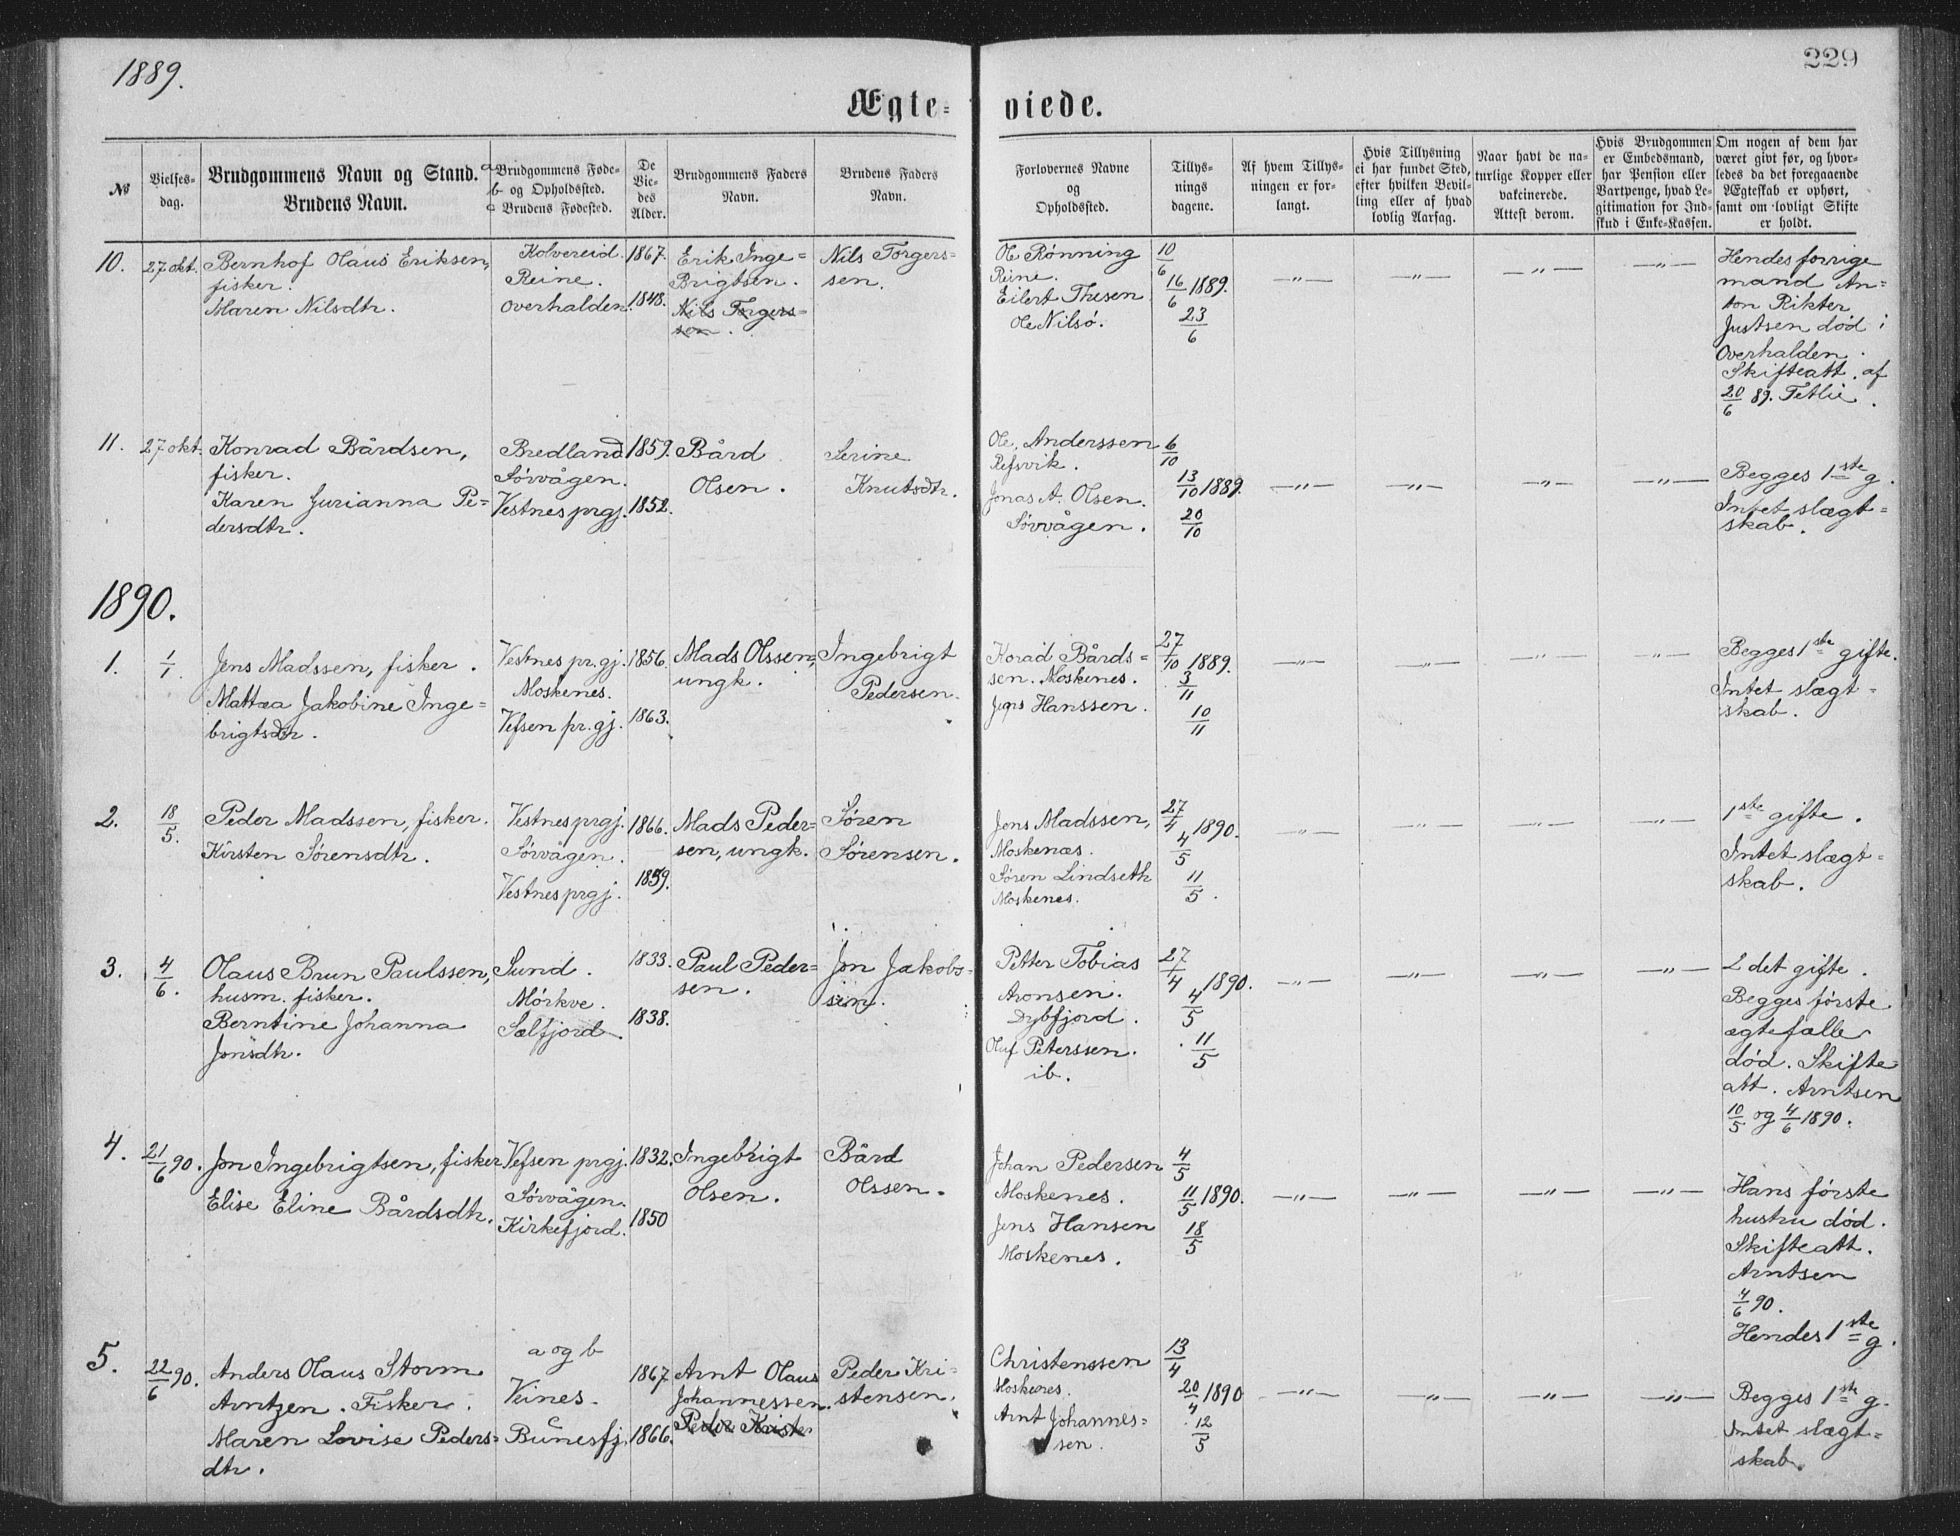 1889.
229
Ægte-
viede.
№
Vielses-
dag.
Brudgommens Navn og Stand.
Brudens Navn.
a
b
c
Brudgommens Føde-
og Opholdssted.
Brudens Fødested.
De
Vie-
des
Alder.
Brudgommens Faders
Navn.
Brudens Faders
Navn.
Forlovernes Navne
og
Opholdssted.
Tillys-
nings
dagene.
Af hvem Tillys-
ningen er for-
langt.
Hvis Tillysning
ei har fundet Sted,
efter hvilken Bevil-
ling eller af hvad
lovlig Aarsag.
Naar havt de na-
turlige Kopper eller
vakcinerede.
Attest derom.
Hvis Brudgommen
er Embedsmand,
har Pension eller
Vartpenge, hvad Le-
gitimation for Ind-
skud i Enke-Kassen.
Om nogen af dem har
været givt før, og hvor-
ledes da det foregaaende
Ægteskab er ophørt,
samt om lovligt Skifte
er holdt.
10.
27 okt.
Bernhof Olaus Eriksen,
fisker.
Maren Nilsdtr.
Kolvereid.
Reine.
Overhalden.
1867.
1848.
Erik Inge=
Brigtsen.
Nils Torgers=
sen.
Nils Torgers=
sen.
Ole Rønning
Reine.
Eilert Thesen
Ole Nilsø.
10/6
16/6 1889.
23/6
—„—
—„—
—„—
—„—
Hendes forrige
mand An=
ton Rikter
Justsen død i
Overhalden.
Skifteatt. af
20/6 89. Tetlie.
11.
27 okt.
Konrad Bårdsen,
fisker.
Karen Gurianna Pe=
dersdtr.
Bredland
Sørvågen.
Vestnes prgj.
1859.
1852.
Bård
Olsen.
Serine
Knutsdtr.
Ole Anderssen
Refsvik.
Jonas A. Olsen.
Sørvågen.
6/10
13/10 1889.
20/10
—„—
—„—
—„—
—„—
Begges 1ste g.
Intet slægt=
skab.
1890.
1.
1/1.
Jens Madssen, fisker.
Mattea Jakobine Inge=
brigtsdtr.
Vestnes pr.gj.
Moskenes.
Vefsen pr.gj.
1856.
1863.
Mads Olssen,
ungk.
Ingebrigt
Pedersen.
Korad Bårds=
sen. Moskenes.
Jens Hanssen.
27/10 1889.
3/11
10/11
—„—
—„—
—„—
—„—
Begges 1ste gifte.
Intet slægt=
skab.
2.
18/5.
Peder Madssen, fisker.
Kirsten Sørensdtr.
Vestnes prgj.
Sørvågen.
Vestnes prgj.
1866.
1859.
Mads Peder=
sen, ungk.
Søren
Sørensen.
Jens Madssen,
Moskenæs.
Søren Lindseth
Moskenes.
27/4 1890.
4/5
11/5.
—„—
—„—
—„—
—„—
1ste gifte.
Intet slægt=
skab.
3.
4/6.
Olaus Brun Paulssen,
husm. fisker.
Berntine Johanna
Jonsdtr.
Sund.
Mörkve.
Sælfjord.
1833.
1838.
Paul Peder=
sen.
Jon Jakobs=
sen.
Petter Tobias
Aronsen.
Dybfjord.
Oluf Peterssen.
ib.
27/4 1890.
4/5
11/5
—„—
—„—
—„—
—„—
2 det gifte.
Begges første
egtefælle
død. Skifte=
att. Arntsen
10/5 og 4/6 1890.
4.
21/6 90.
Jon Ingebrigtsen, fisker
Elise Eline Bårdsdtr.
Vefsen prgj.
Sørvågen.
Kirkefjord.
1832.
1850
Ingebrigt
Olsen.
Bård
Olssen.
Johan Pedersen
Moskenes.
Jens Hansen
Moskenes.
4/5
11/5 1890.
18/5
—„—
—„—
—„—
—„—
Hans første
hustru død.
Skifteatt.
Arntsen
4/6 90.
Hendes 1ste g.
5.
22/6 90.
Anders Olaus Storm
Arntzen. Fisker.
Maren Lovise Peders=
dtr.
a og b
Veines.
c
Bunesfj.
1867
1866.
Arnt Olaus
Johannessen.
Peder Kriste
Peder Kri=
stensen.
Christenssen
Moskenes.
Arnt Johannes=
sen.
13/4
20/4 1890
12/5
—„—
—„—
—„—
—„—
Begges 1ste g.
Intet slægt=
skab.